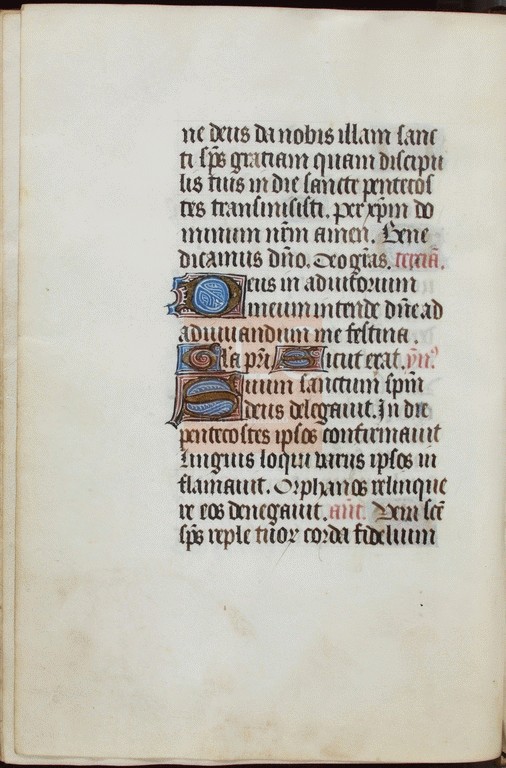 ne deus da nobis illam sanc
ti sp̄s gratiam quam discipu
lis tuis in die sancte pentecos
tes transmisisti. per xp̄m do
minum nr̄m amen. Bene
dicamus dn̄o. Deo gr̄as. terciā.
Deus in adiutorium
meum intende dn̄e ad
adiuuandum me festina.
Gl̄a pr̄i Sicut erat. ym̄.
Suum sanctum sp̄m
deus delegauit. In die
pentecostes ipsos confirmauit
Linguis loqui variis ipsos in
flamauit. Orphanos relinque
re eos denegauit. an̄t. Veni sc̄e
sp̄s reple tuor corda fidelium